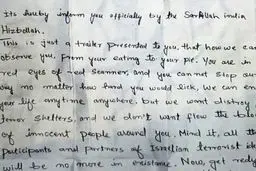 Its hereby inform you officially by the Sarallah india
Hizbollah.
This is just a trailer presented to you, that how we can
observe you, from your eating to your pie. You are in
red eyes of red scanner, and you can not stop our
way no matter how hard you would lick, We can en
your life anytime anywhere. but we wont distroy
terror shelters, and we don't want flow the bloo
of innocent people around you, Mind it, all th
paticipants and partners of Israelian terrorist ide
will be no more in existance. Now, get redy